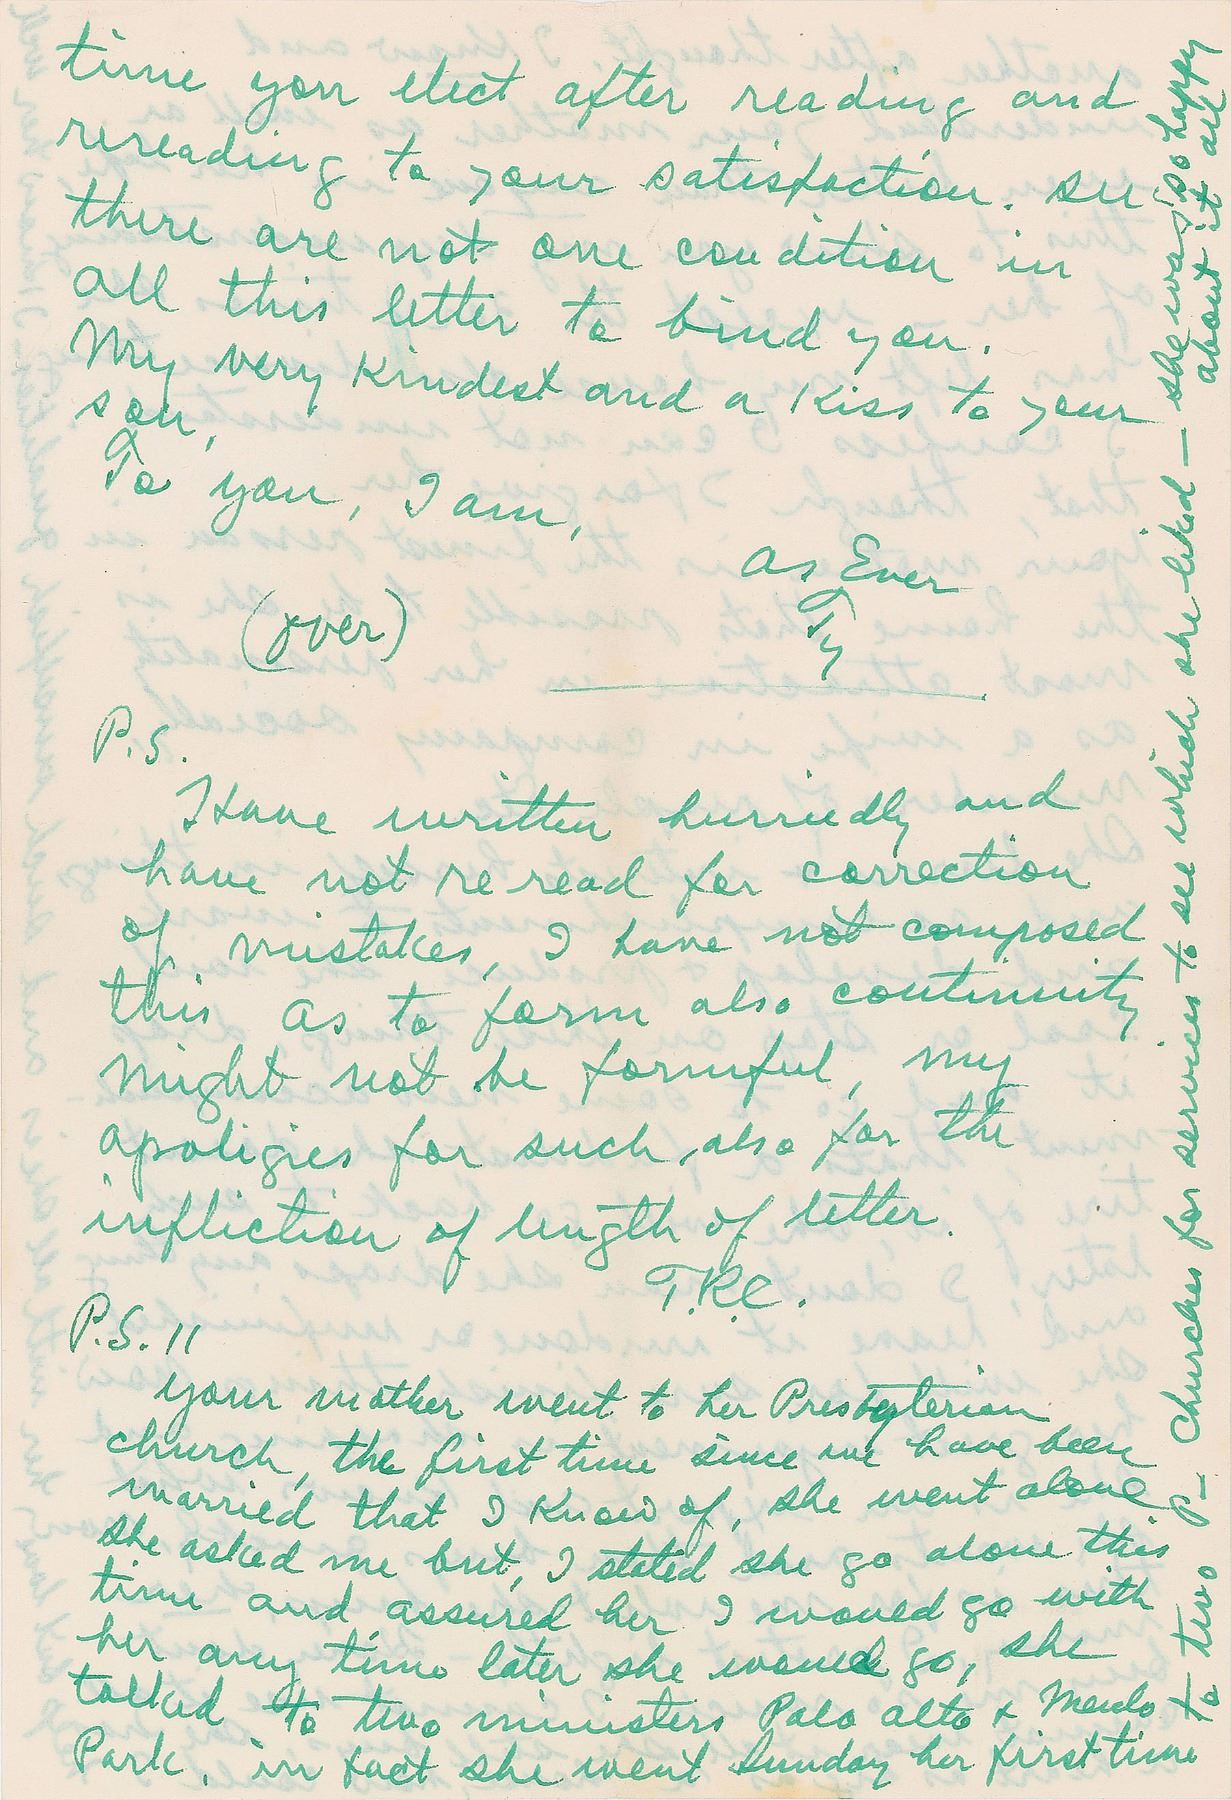 time you elect after reading and
rereading to your satisfaction. see
there are not one condition in
all this letter to bind you.
My very kindest and a kiss to your
son,
To you, I am,
as Ever
(over)
Ty
P.S.
Have written hurriedly and
have not reread for correction
of mistakes, I have not composed
this as to form also continuity
might not be formful, my
apoligies for such, also for the
infliction of length of letter.
T.R.C.
P.S. 11
your mother went to her Presbyterian
church, the first time since we have been
married that I know of, she went alone
she asked me but, I stated she go alone this
time and assured her I woued go with
her any time later she woued go, she
talked to two ministers Palo alto & Menlo
Park, in fact she went Sunday her first time
to two P- Churches for services to see which she liked - she was so happy
about it all